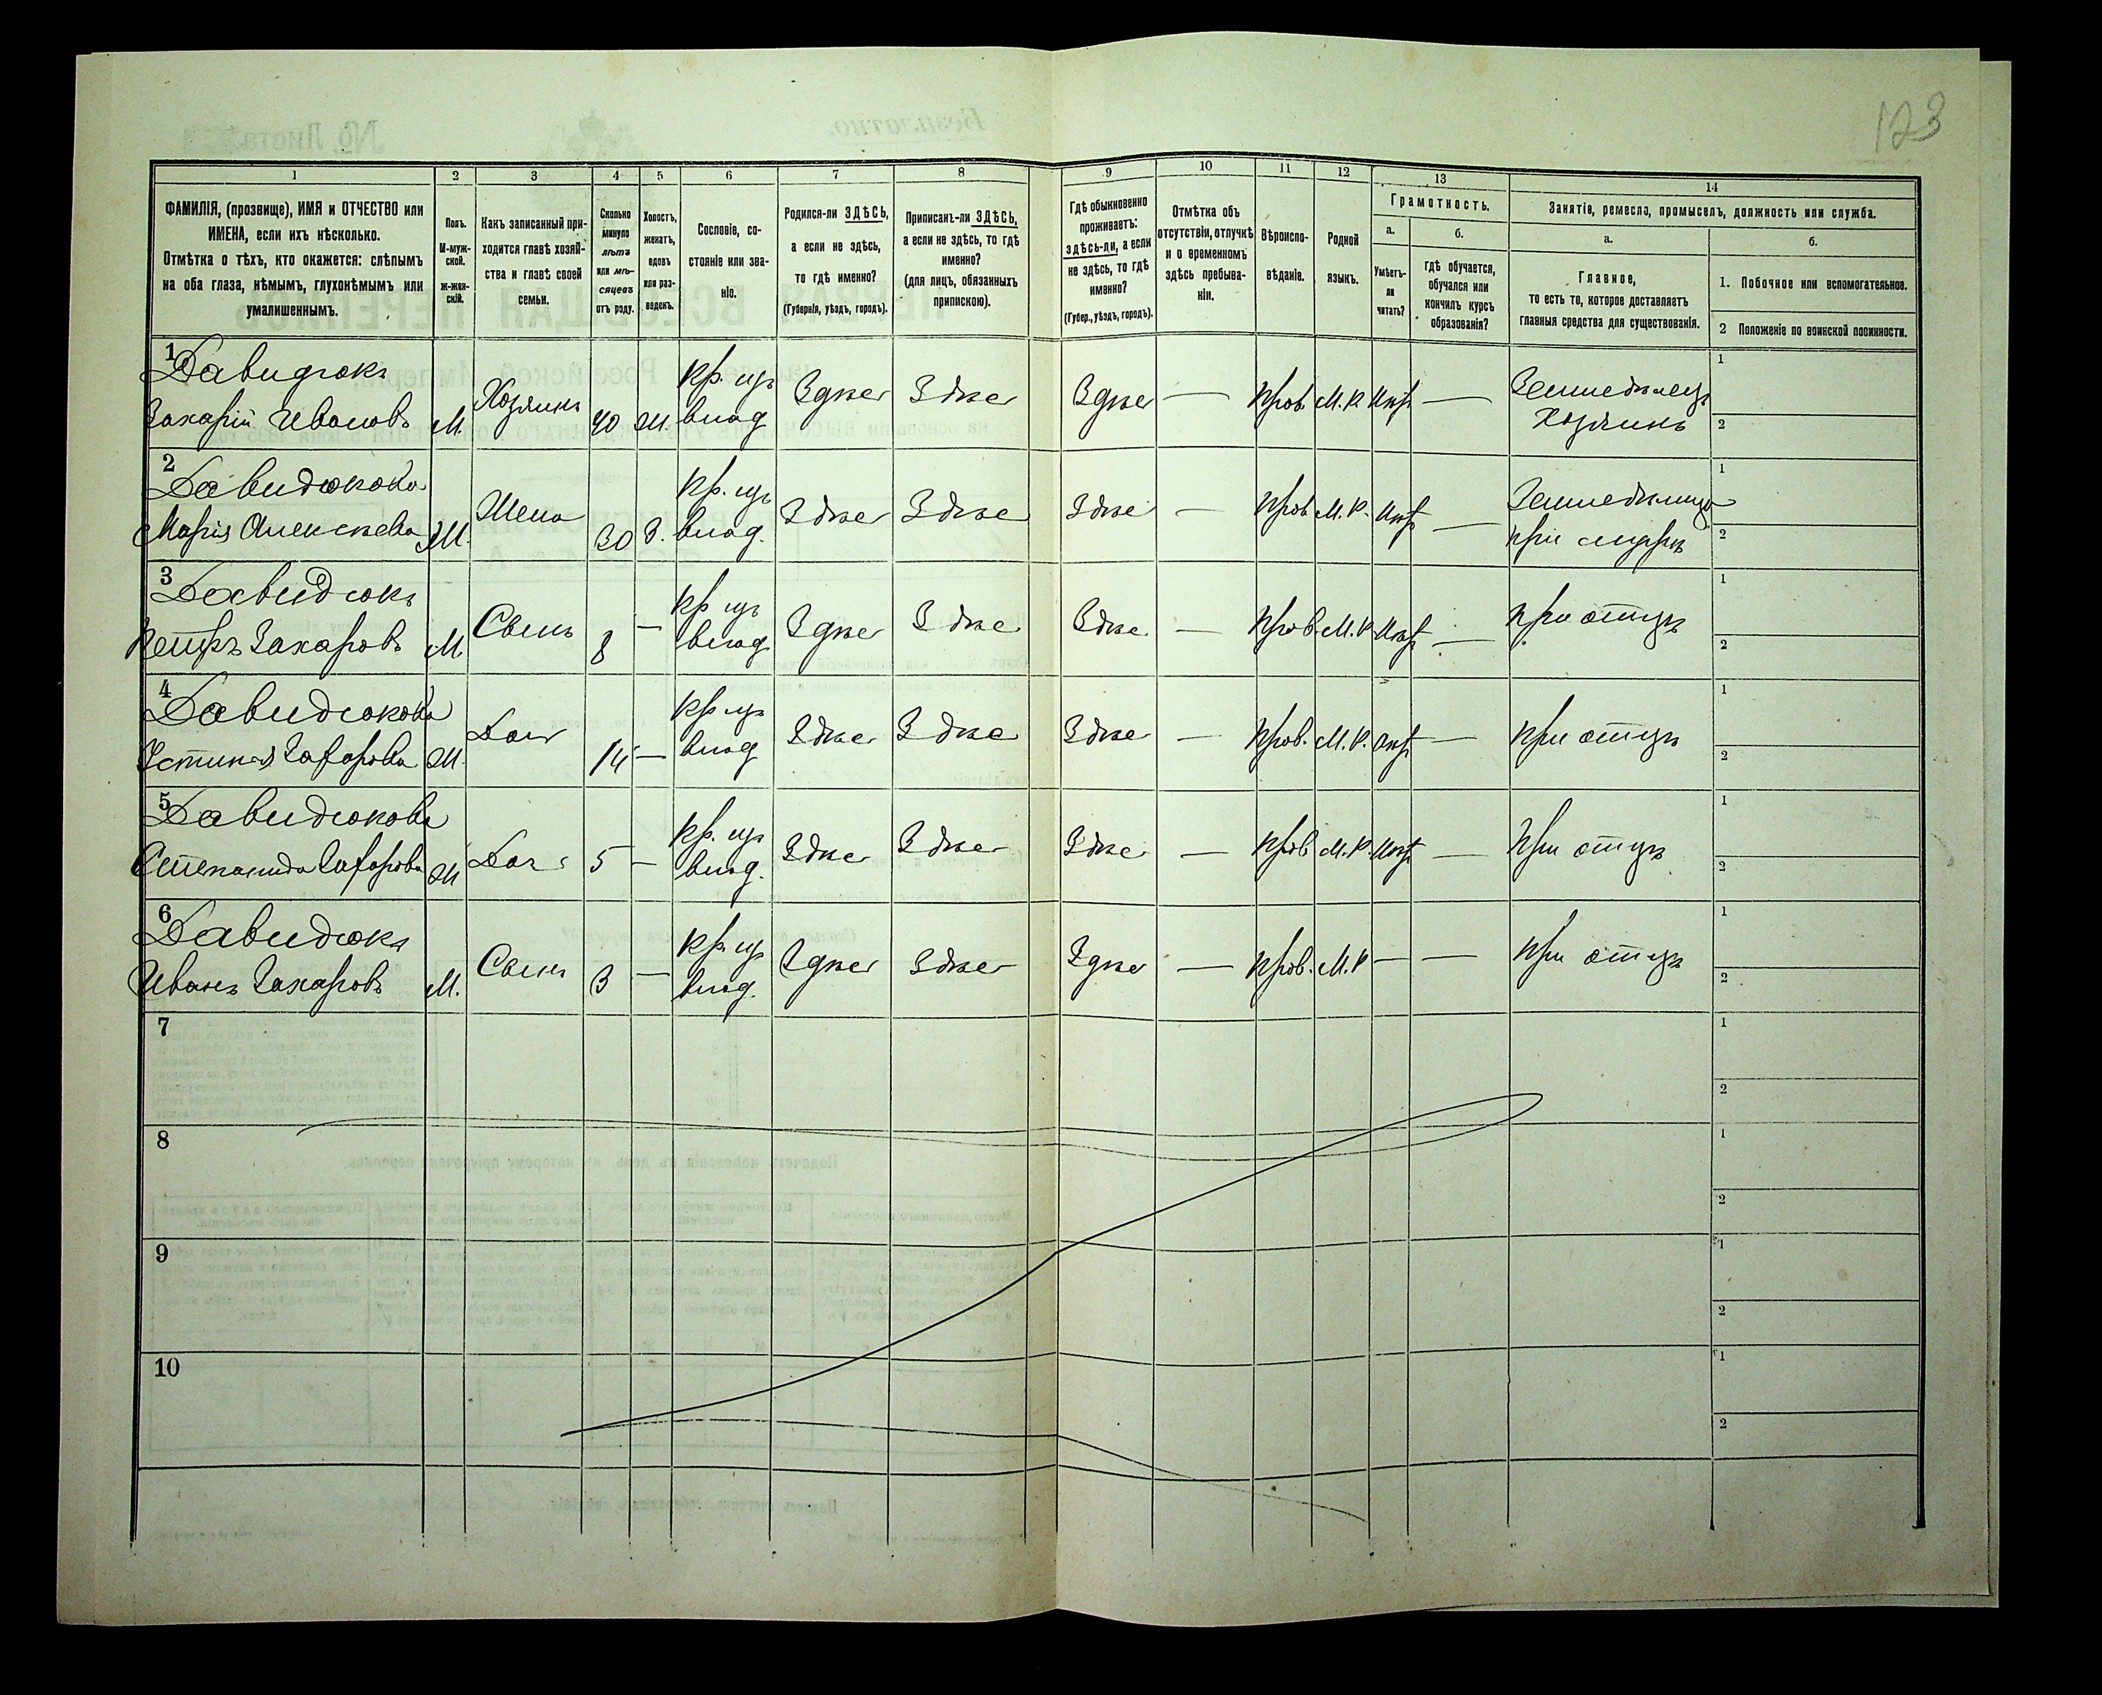 123
1 2 3 4 5 6 7 8 9 10 11 12 13 14
ФАМИЛІЯ, (прозвище), ИМЯ и ОТЧЕСТВО или
ИМЕНА, если ихъ нѣсколько.
Отмѣтка о тѣхъ, кто окажется: слѣпымъ
на оба глаза, нѣмымъ, глухонѣмымъ или
умалишеннымъ.
Полъ.
М-муж-
ской.
Ж-жен-
скій.
Какъ записанный при-
ходится главѣ хозяй-
ства и главѣ своей
семьи.
Сколько
минуло
лѣтъ
или мѣ-
сяцевъ
отъ роду.
Холостъ,
женатъ,
вдовъ
или раз-
веденъ.
Сословіе, со-
стояніе или зва-
ніе.
Родился-ли ЗДѢСЬ,
а если не здѣсь,
то гдѣ именно?
(Губернія, уѣздъ, городъ).
Приписанъ-ли ЗДѢСЬ,
а если не здѣсь, то гдѣ
именно?
(для лицъ, обязанныхъ
припискою).
Гдѣ обыкновенно
проживаетъ:
здѣсь-ли, а если
не здѣсь, то гдѣ
именно?
(Губер., уѣздъ, городъ).
Отмѣтка объ
отсутствіи, отлучкѣ
и о временномъ
здѣсь пребыва-
ніи.
Вѣроиспо-
вѣданіе.
Родной
языкъ.
Грамотность.
а.
Умѣетъ-
ли
читать?
б.
Гдѣ обучается,
обучался или
кончилъ курсъ
образованія?
Занятіе, ремесло, промыселъ, должность или служба.
а.
Главное,
то есть то, которое доставляетъ
главныя средства для существованія.
б.
1. Побочное или вспомогательное.
2 Положеніе по воинской повинности.
1 Давидюкъ Кр. изъ Здѣсь Здѣсь Здѣсь — Прав. М.Р. — Земледѣлецъ 1
Захарій Ивановъ М. Хозяинъ 40 Ж. влад Хозяинъ 2
2 Давидюкова Кр. изъ Здѣсь Здѣсь Здѣсь — Прав. М.Р. — 1
Марія Алексѣева Ж. Жена 30 З. влад. при 2
3 Давидюкъ Кр изъ Здѣсь Здѣсь Здѣсь — Прав. М.Р. — при отцѣ 1
Петръ Захаровъ М. Сынъ 8 — влад 2
4 Давидюкова Кр изъ Здѣсь Здѣсь Здѣсь — Прав. М.Р. — при отцѣ 1
Устинья Захарова Ж. Доч 14 — влад 2
5 Давидюкова Кр. изъ Здѣсь Здѣсь Здѣсь — Прав. М.Р. — При отцѣ 1
Степанида Захарова Ж Доч 5 — влад. 2
6 Давидюкъ Кр. изъ Здѣсь Здѣсь Здѣсь — Прав. М.Р — — при отцѣ 1
Иванъ Захаровъ М. Сынъ 3 — влад. 2
7 1
2
8 1
2
9 1
2
10 1
2